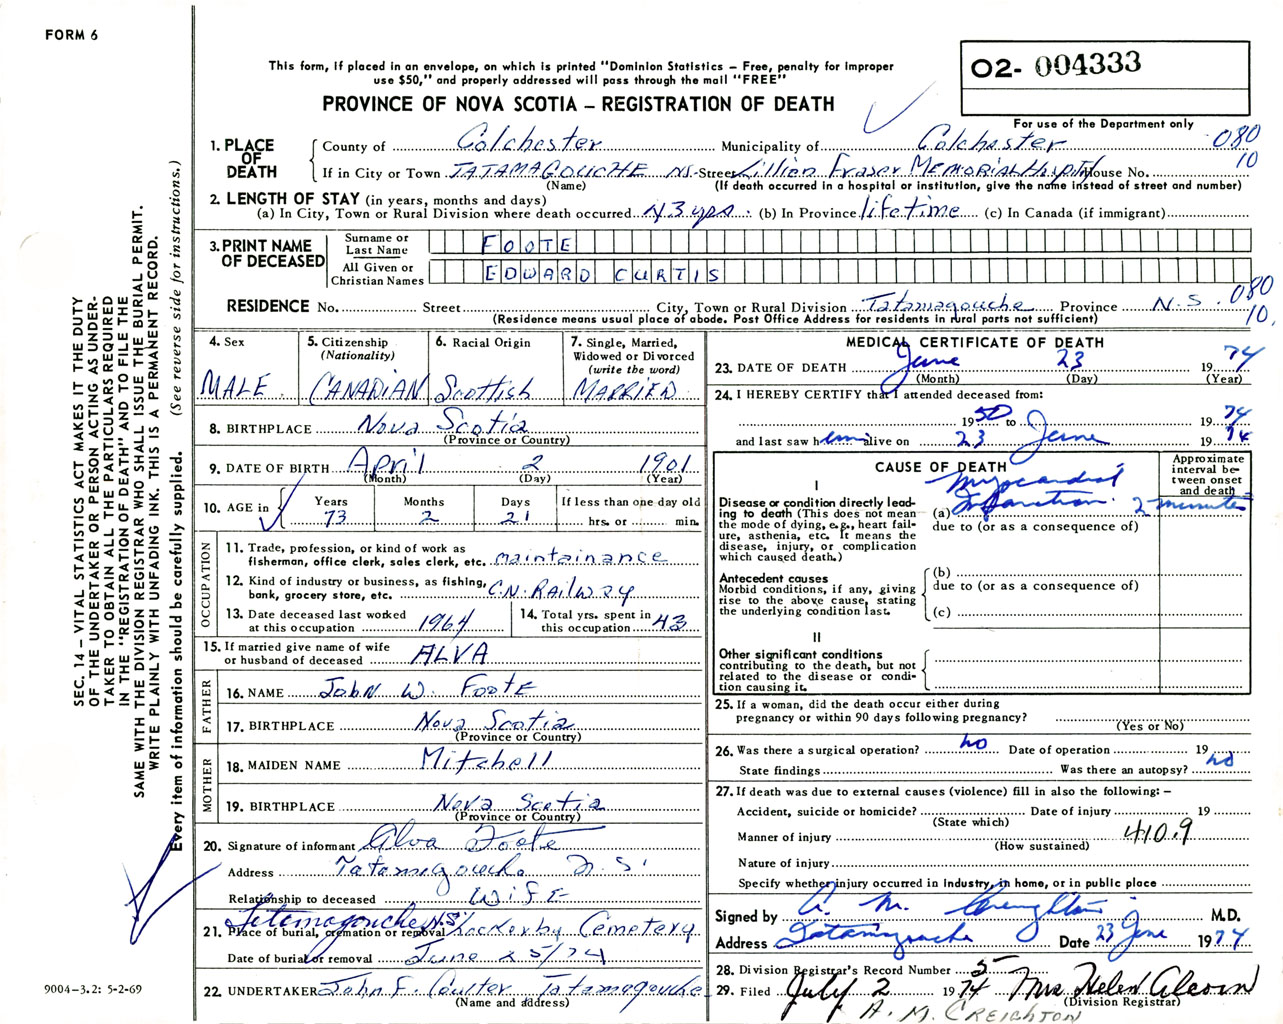 FORM 6
This form, if placed in an envelope, on which is printed "Dominion Statistics – Free, penalty for improper
use $50," and properly addressed will pass through the mail "FREE"
PROVINCE OF NOVA SCOTIA – REGISTRATION OF DEATH
02- 004333
For use of the Department only
1. PLACE OF DEATH
County of Colchester Municipality of Colchester 080
If in City or Town TATAMAGOUCHE N.S. Street Lillian Fraser MEMORIAL Hospital House No. 10
(Name) (If death occurred in a hospital or institution, give the name instead of street and number)
2. LENGTH OF STAY (in years, months and days)
(a) In City, Town or Rural Division where death occurred 43 yrs. (b) In Province lifetime (c) In Canada (if immigrant)
3. PRINT NAME OF DECEASED
Surname or Last Name FOOTE
All Given or Christian Names EDWARD CURTIS
RESIDENCE No. Street City, Town or Rural Division Tatamagouche Province N.S. 080
(Residence means usual place of abode. Post Office Address for residents in rural parts not sufficient) 10.
4. Sex
MALE.
5. Citizenship
(Nationality)
CANADIAN
6. Racial Origin
Scottish
7. Single, Married,
Widowed or Divorced
(write the word)
MARRIED.
8. BIRTHPLACE Nova Scotia
(Province or Country)
9. DATE OF BIRTH April 2 1901
(Month) (Day) (Year)
10. AGE in
Years Months Days If less than one day old
73 2 21 hrs. or min.
OCCUPATION
11. Trade, profession, or kind of work as
fisherman, office clerk, sales clerk, etc. maintainance
12. Kind of industry or business, as fishing,
bank, grocery store, etc. C.N. Railway
13. Date deceased last worked
at this occupation 1964
14. Total yrs. spent in
this occupation 43
15. If married give name of wife
or husband of deceased ALVA
FATHER
16. NAME John W. Foote
17. BIRTHPLACE Nova Scotia
(Province or Country)
MOTHER
18. MAIDEN NAME Mitchell
19. BIRTHPLACE Nova Scotia
(Province or Country)
20. Signature of informant Alva Foote
Address Tatamagouche N.S.
Relationship to deceased WIFE
Tatamagouche N.S.
21. Place of burial, cremation or removal Lockerby Cemetery
Date of burial or removal June 25/74
22. UNDERTAKER John F. Coulter Tatamagouche
(Name and address)
MEDICAL CERTIFICATE OF DEATH
23. DATE OF DEATH June 23 1974
(Month) (Day) (Year)
24. I HEREBY CERTIFY that I attended deceased from:
1950 to 1974
and last saw him alive on 23 June 1974
CAUSE OF DEATH
Approximate
interval be-
tween onset
and death
I
Disease or condition directly lead-
ing to death (This does not mean
the mode of dying, e.g., heart fail-
ure, asthenia, etc. It means the
disease, injury, or complication
which caused death.)
Myocardial
(a) Infarction. 2 minutes
due to (or as a consequence of)
Antecedent causes
Morbid conditions, if any, giving
rise to the above cause, stating
the underlying condition last.
(b)
due to (or as a consequence of)
(c)
II
Other significant conditions
contributing to the death, but not
related to the disease or condi-
tion causing it.
25. If a woman, did the death occur either during
pregnancy or within 90 days following pregnancy?
(Yes or No)
26. Was there a surgical operation? no Date of operation 19
State findings Was there an autopsy? no
27. If death was due to external causes (violence) fill in also the following: –
Accident, suicide or homicide? Date of injury 19
(State which)
Manner of injury 410.9
(How sustained)
Nature of injury
Specify whether injury occurred in industry, in home, or in public place
Signed by A. M. Creighton M.D.
Address Tatamagouche Date 23 June 1974
28. Division Registrar's Record Number 5
29. Filed July 2 1974 Mrs Helen Alcorn
(Division Registrar)
A. M. CREIGHTON
SEC. 14 – VITAL STATISTICS ACT MAKES IT THE DUTY
OF THE UNDERTAKER OR PERSON ACTING AS UNDER-
TAKER TO OBTAIN ALL THE PARTICULARS REQUIRED
IN THE "REGISTRATION OF DEATH" AND TO FILE THE
SAME WITH THE DIVISION REGISTRAR WHO SHALL ISSUE THE BURIAL PERMIT.
WRITE PLAINLY WITH UNFADING INK. THIS IS A PERMANENT RECORD.
Every item of information should be carefully supplied. (See reverse side for instructions.)
9004-3.2: 5-2-69